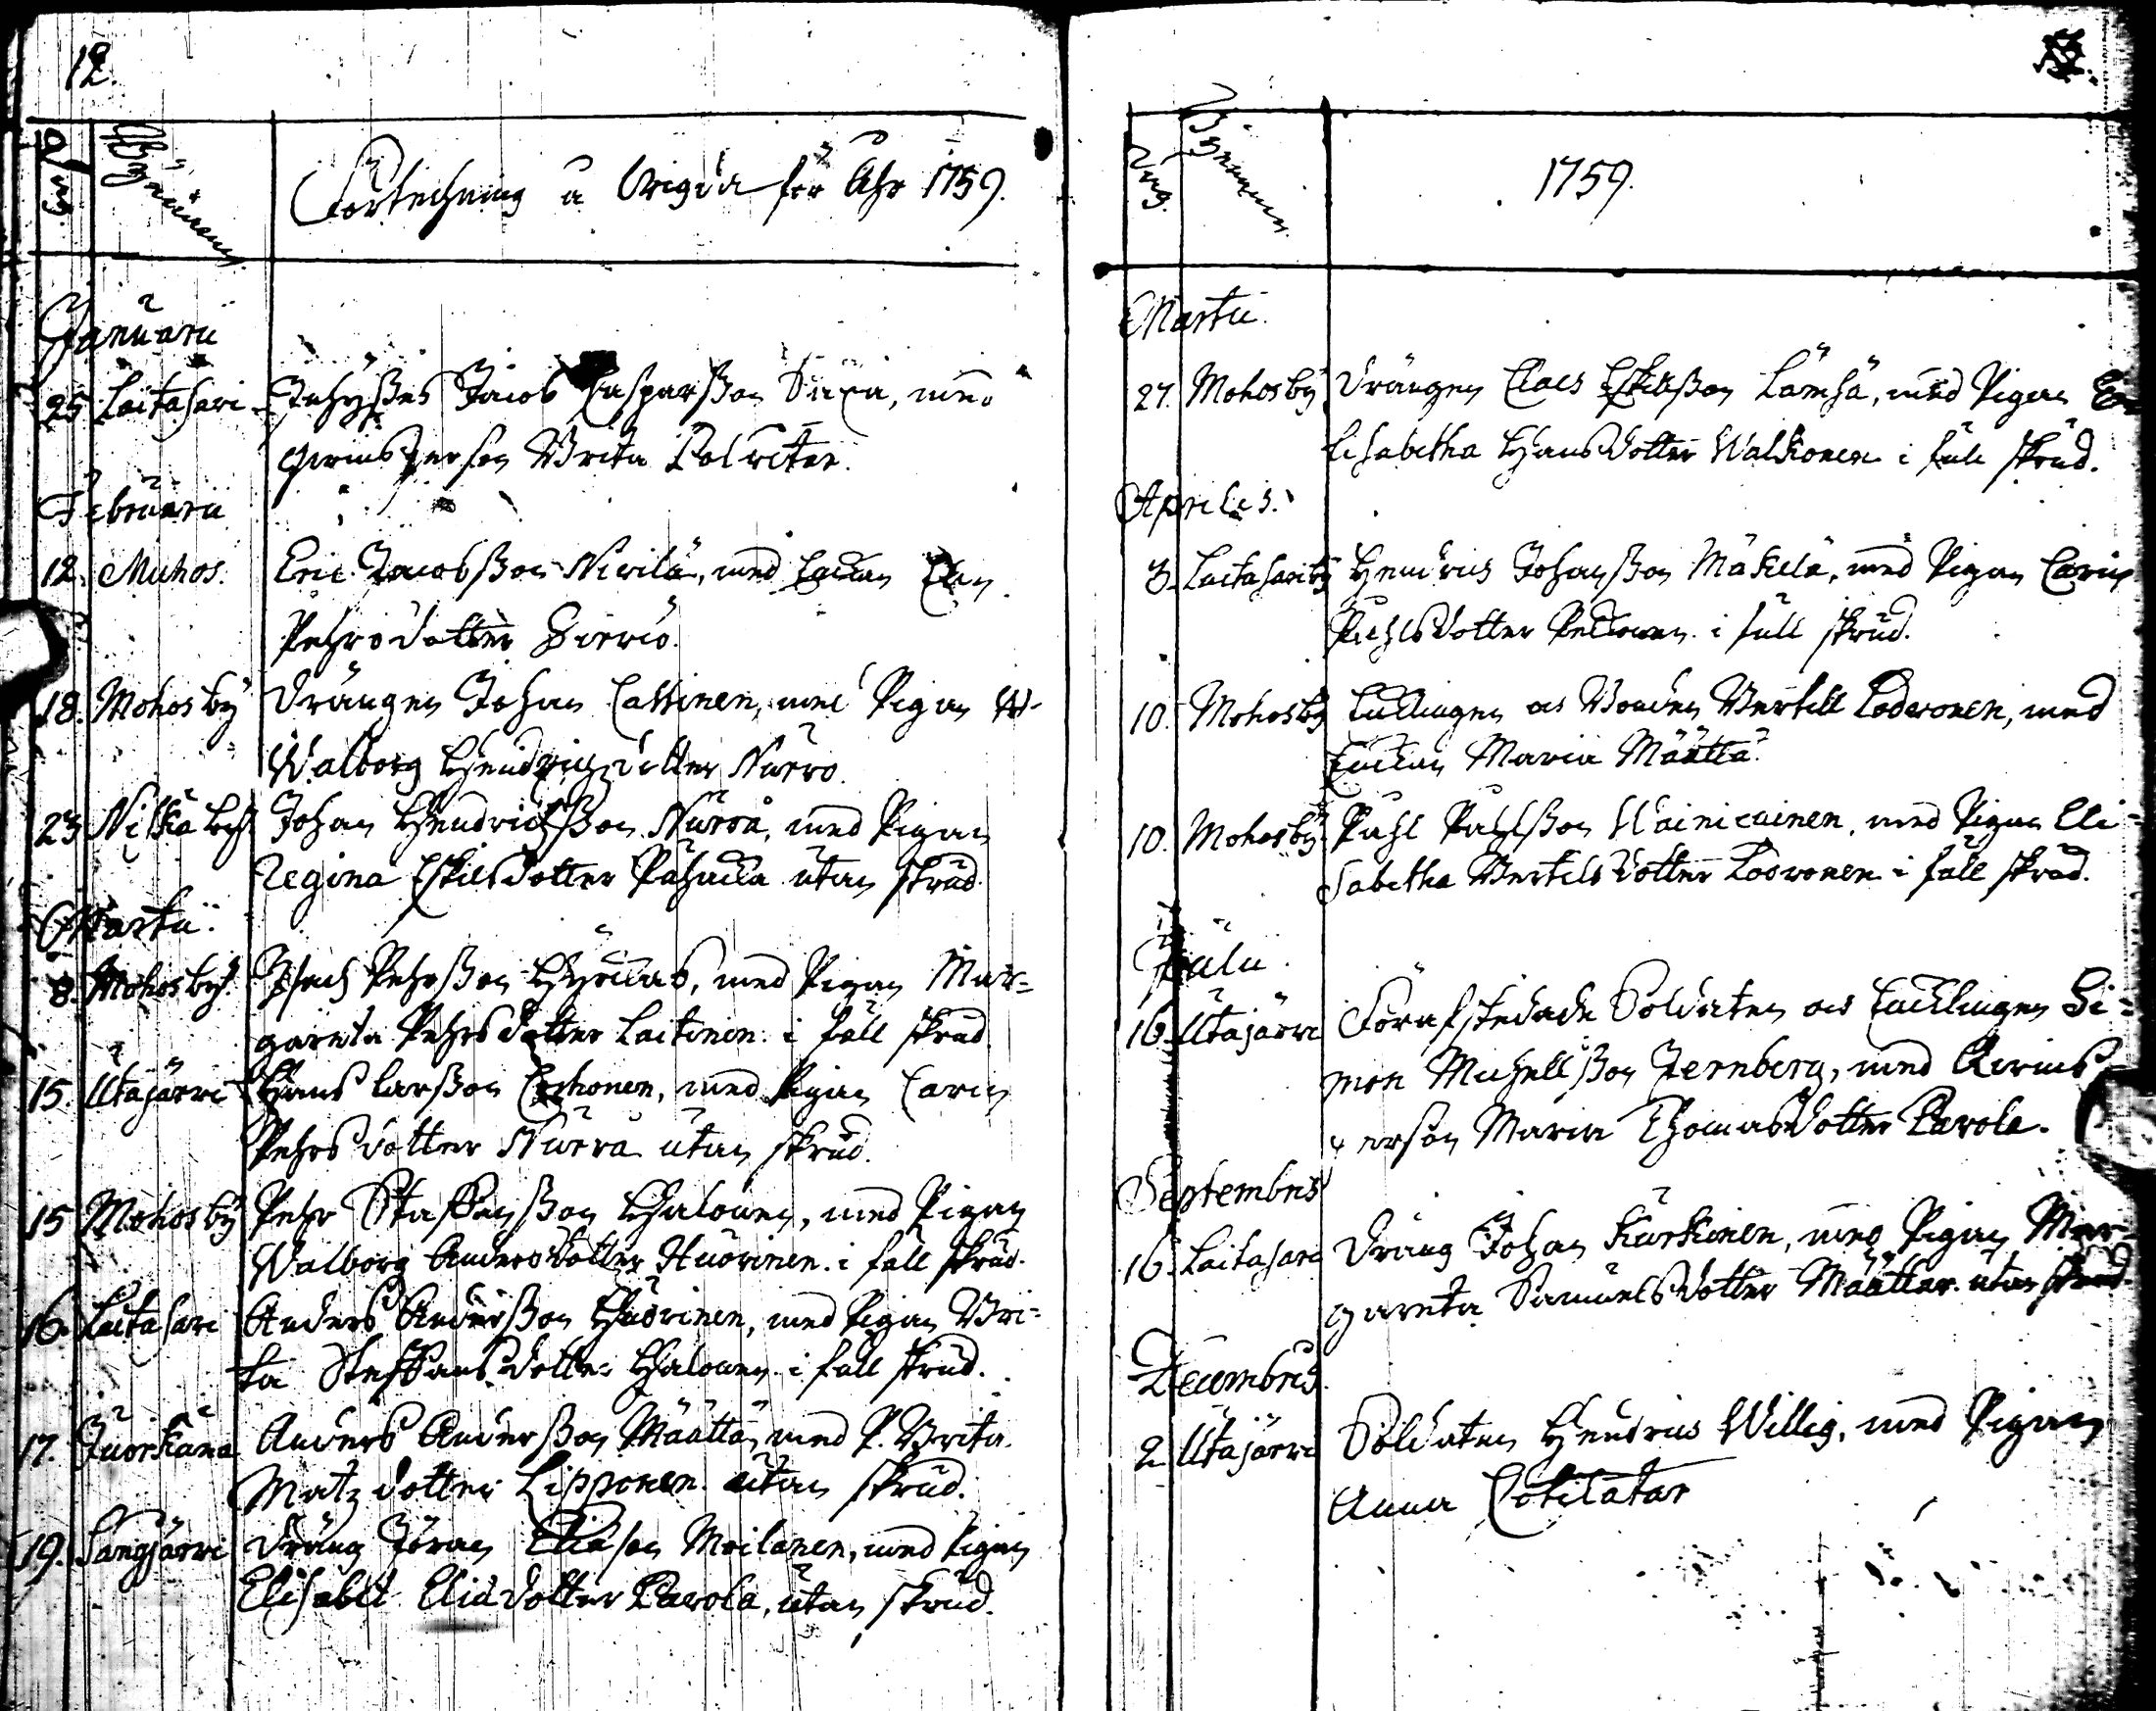 12.
Dag. Byarnas
Förtechning å Wigda för Åhr 1759.
Januarii
25 Laitasari Inhyses Jacob Casparsson med
qwinsperson Brita
Februarii
12. Muhos. Eric Jacobsson Nivilä, med Enkan
Pehrsdotter
18. Mohosby Drängen Johan med Pigan
Walborg Hendrichsdotter Nurro.
23 Johan Hendrichsson Nurrå, med Pigan
Regina Eskilsdotter utan skrud
Martii.
8. Mohosby. Isach Pehrsson med Pigan Mar=
gareta Pehrsdotter Laitinen i full skrud
15. Utajärvi Hans Larsson med Pigan Carin
Pehrsdotter Nurra utan skrud.
15 Mohosby Pehr Staffansson Halonen, med Pigan
Walborg Andersdotter Huovinen. i full skrud.
16. Laitasari Anders Andersson Huovinen, med Pigan Bri=
ta Steffansdotter Halonen i full skrud.
17. Juorkuna Anders Andersson Määttä, med P. Brita
Matzdotter Lipponen. utan skrud.
19. Sangjärvi Dräng Jöran Eliæson Moilanen, med Pigan
Elisabet Eliædotter Parola, utan skrud.
Dag. Byarnas
1759.
Martii.
27. Mohosby Drängen Claes Eskilsson Lämsä, med Pigan E
lisabetha Hansdotter Walkonen i full skrud.
Aprilis.
3. Laitasariby Hendric Johansson Mäkelä, med Pigan Carin
Påhlsdotter i full skrud.
10. Mohosby Enklingen och Bonden Bertill med
Enkan Maria Määttä.
10. Mohosby Påhl Påhlsson Wäinicainen, med Pigan Eli=
sabetha Bertelsdotter i full skrud.
Julii.
16. Utajärvi Förafskedade Soldaten och Enklingen Si=
mon Michellsson med Qwins
person Maria Thomasdotter Parola.
Septembris
16. Laitasari Dräng Johan Kurkinen, med Pigan Mar=
gareta Samuelsdotter Määttär. utan skrud
Decembris.
2. Utajärvi Soldaten Hendric Willig, med Pigan
Anna Cotilatar